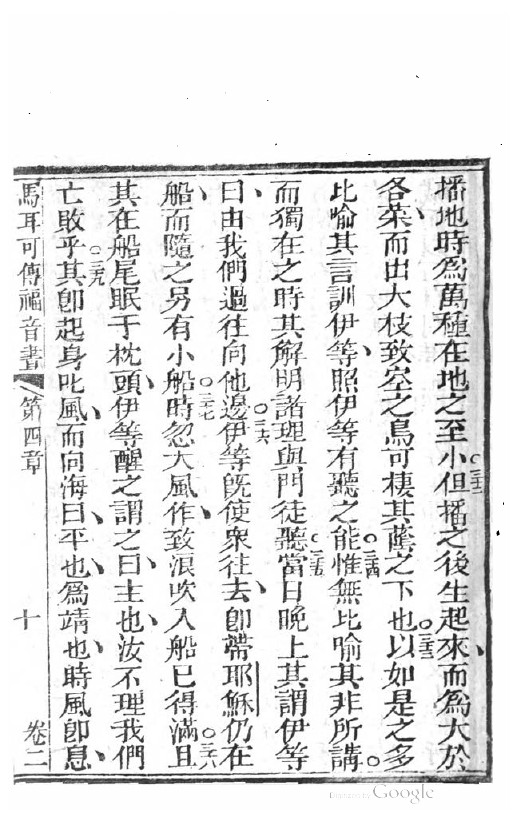 播地時爲萬種在地之至小但播之後生起來而爲大於
各菜而出大枝致空之鳥可棲其蔭之下也以如是之多
比喻其言訓伊等照伊等有聽之能惟無比喻其非所講
而獨在之時其解明諸理與門徒聽當日晚上其謂伊等
曰由我們過往向他邊伊等旣使衆往去卽帶耶穌仍在
船而隨之另有小船時忽大風作致浪吹入船已得滿且
其在船尾眠于枕頭伊等醒之謂之曰主也汝不理我們
亡敗乎其卽起身叱風而向海曰平也爲靖也時風卽息
馬耳可傳福音書 第四章 十 卷二
三二
三三
三四
三五
三六
三七
三八
三九
Digitized by Google